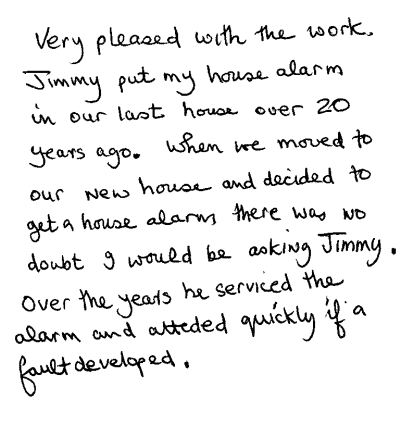 Very pleased with the work.
Jimmy put my house alarm
in our last house over 20
years ago. When we moved to
our new house and decided to
get a house alarm there was no
doubt I would be asking Jimmy.
Over the years he serviced the
alarm and atteded quickly if a
fault developed.